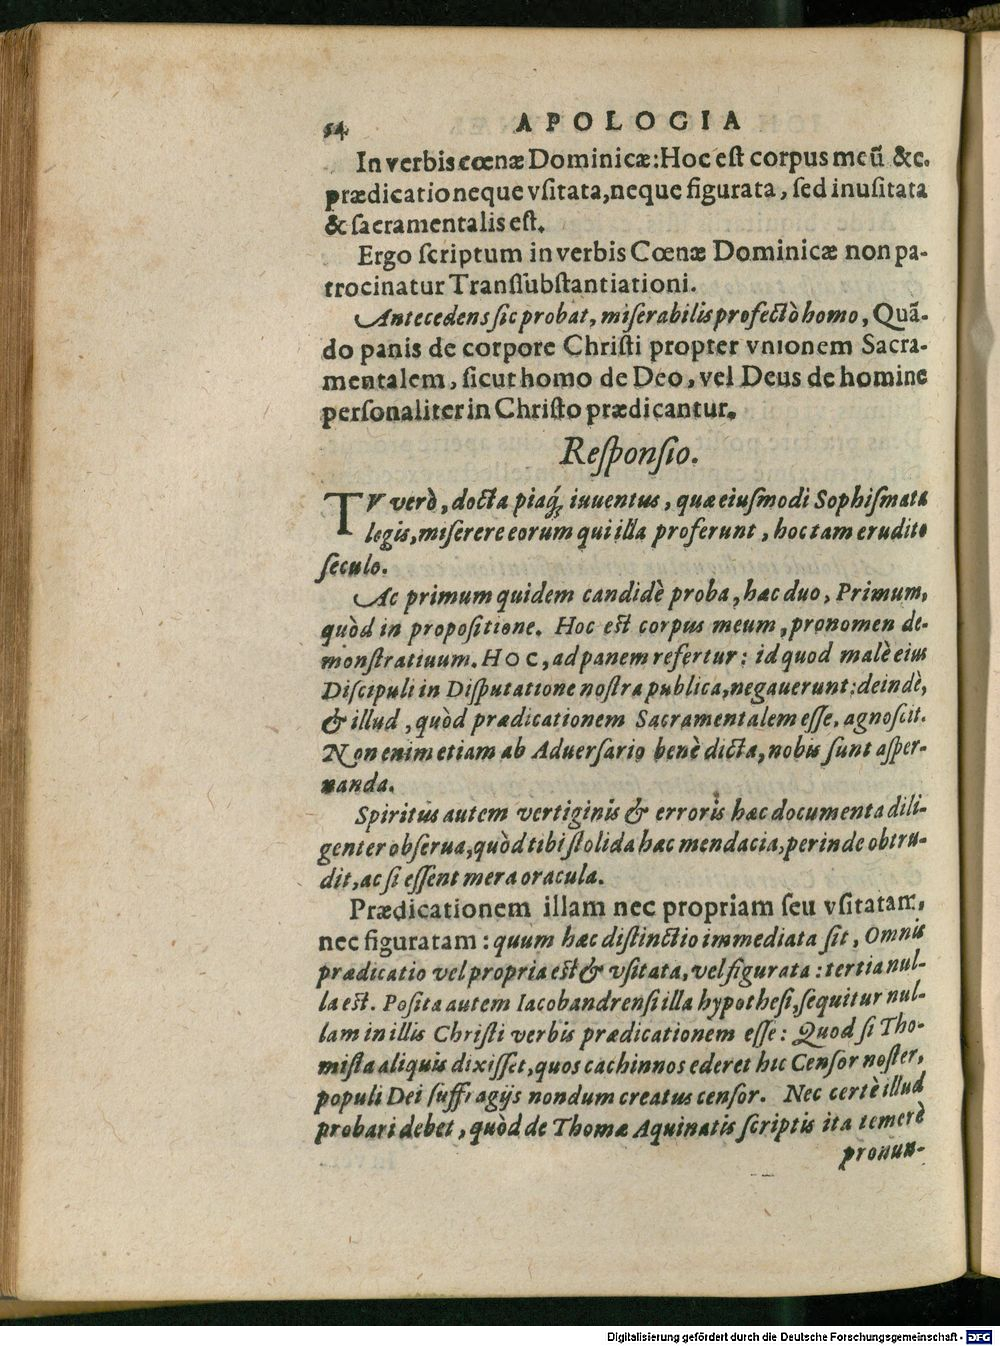 54 APOLOGIA
In verbis cœnæ Dominicæ: Hoc eſt corpus meũ &c.
prædicatio neque vſitata, neque figurata, ſed inuſitata
& ſacramentalis eſt.
Ergo ſcriptum in verbis Cœnæ Dominicæ non pa-
trocinatur Tranſſubſtantiationi.
Antecedens ſic probat, miſerabilis profectò homo, Quã-
do panis de corpore Chriſti propter vnionem Sacra-
mentalem, ſicut homo de Deo, vel Deus de homine
perſonaliter in Chriſto prædicantur.
Reſponſio.
TV verò, docta piaq́; iuuentus, quæ eiuſmodi Sophiſmata
legis, miſerere eorum qui illa proferunt, hoc tam erudito
ſeculo.
Ac primum quidem candidè proba, hæc duo, Primum,
quòd in propoſitione. Hoc eſt corpus meum, pronomen de-
monſtratiuum. HOC, ad panem refertur: id quod malè eius
Diſcipuli in Diſputatione noſtra publica, negauerunt: deindè,
& illud, quòd prædicationem Sacramentalem eſſe, agnoſcit.
Non enim etiam ab Aduerſario benè dicta, nobis ſunt aſper-
nanda.
Spiritus autem vertiginis & erroris hæc documenta dili-
genter obſerua, quòd tibi ſtolida hæc mendacia, perinde obtru-
dit, ac ſi eſſent mera oracula.
Prædicationem illam nec propriam ſeu vſitatam,
nec figuratam: quum hæc diſtinctio immediata ſit, Omnis
prædicatio vel propria eſt & vſitata, vel figurata: tertia nul-
la eſt. Poſita autem Iacobandrenſi illa hypotheſi, ſequitur nul-
lam in illis Chriſti verbis prædicationem eſſe: Quod ſi Tho-
miſta aliquis dixiſſet, quos cachinnos ederet hic Cenſor noſter,
populi Dei ſuffragijs nondum creatus cenſor. Nec certè illud
probari debet, quòd de Thomæ Aquinatis ſcriptis ita temerè
pronun-
Digitalisierung gefördert durch die Deutsche Forschungsgemeinschaft - DFG